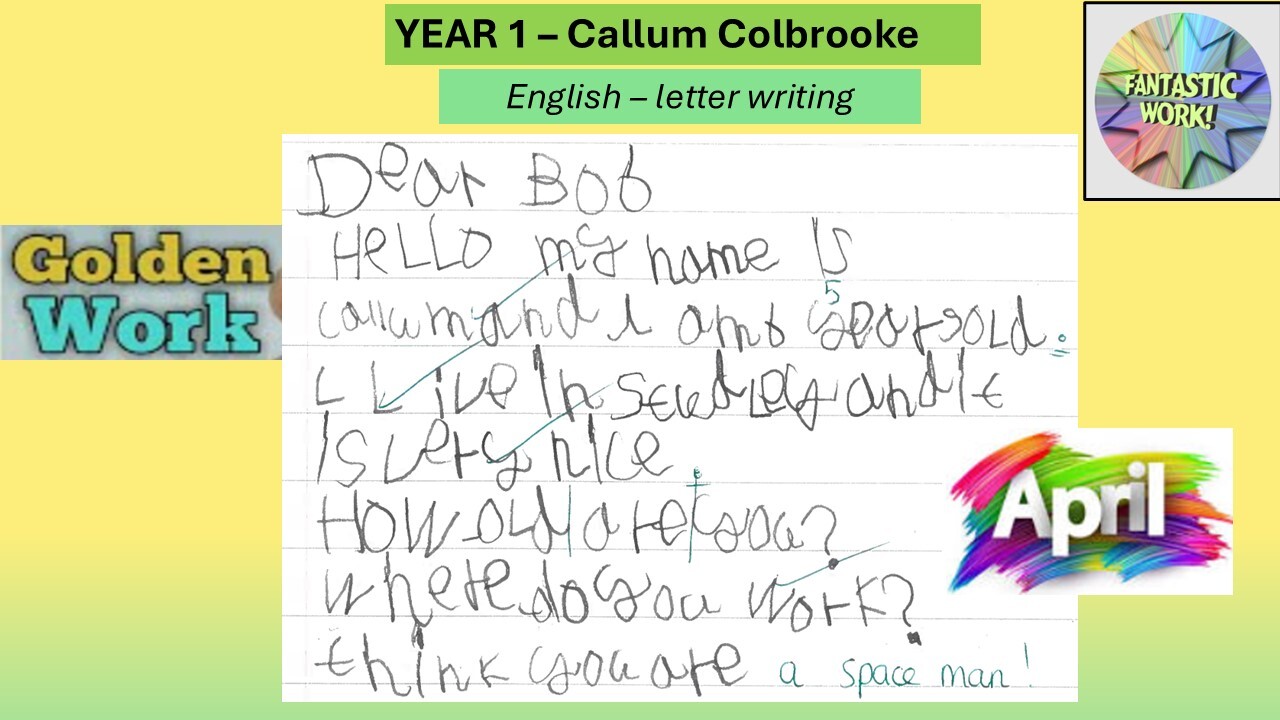 YEAR 1 – Callum Colbrooke
English – letter writing
FANTASTIC
WORK!
Golden
Work
Dear Bob
HeLLO my name Is
5
callum and i am 6 years old.
i Live In Studley and It
Is very nIce.
How old are you?
where do you work?
thInk you are a space man!
April